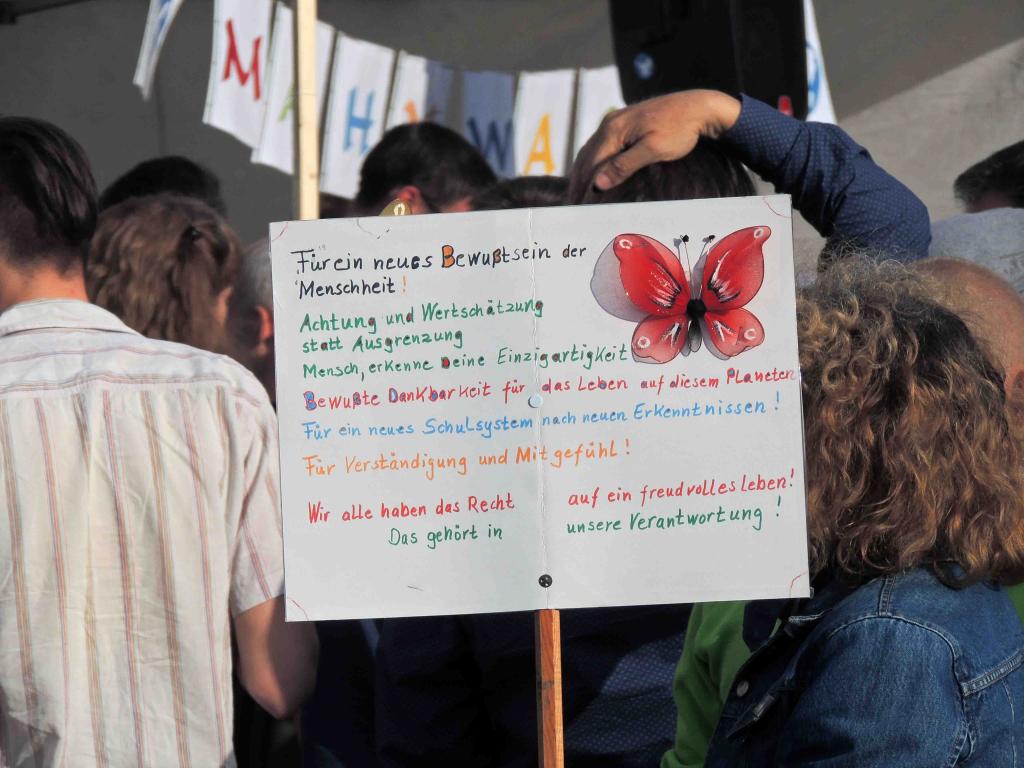 M
A
H
W
A
Für ein neues Bewußtsein der
Menschheit!
Achtung und Wertschätzung
statt Ausgrenzung
Mensch, erkenne Deine Einzigartigkeit
Bewußte Dankbarkeit für das Leben auf diesem Planeten
Für ein neues Schulsystem nach neuen Erkenntnissen!
Für Verständigung und Mitgefühl!
Wir alle haben das Recht auf ein freudvolles Leben!
Das gehört in unsere Verantwortung!